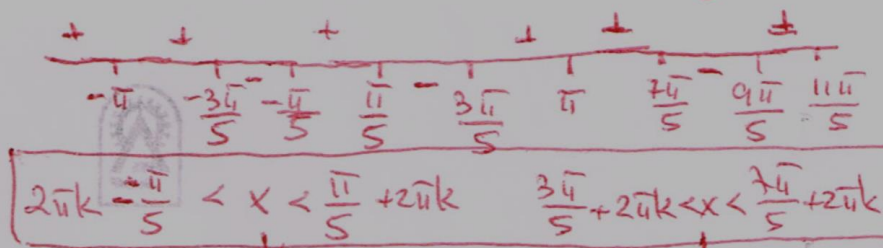 + + + + + +
-π -3π/5 - -π/5 π/5 - 3π/5 π 7π/5 - 9π/5 11π/5
2πk - π/5 < x < π/5 + 2πk 3π/5 + 2πk < x < 7π/5 + 2πk